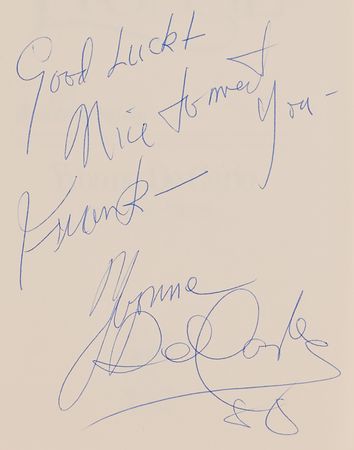 Good Luck &
Nice to meet
You —
Frank —
Yvonne
De Carlo
88